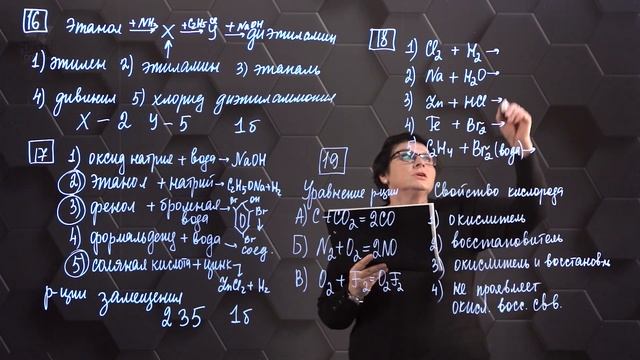 16 Этанол +NH₃→ X +C₂H₅Cl→ У +NaOH→ диэтиламин
1) этилен 2) этиламин 3) этаналь
4) дивинил 5) хлорид диэтиламмония
X – 2 У – 5 1б
17 1) оксид натрия + вода → NaOH
2) этанол + натрий → C₂H₅ONa + H₂
3) фенол + бромная вода →
Br OH Br
Br
4) формальдегид + вода → соед.
5) соляная кислота + цинк →
ZnCl₂ + H₂
р-ции замещения
235 1б
18 1) Cl₂ + H₂ →
2) Na + H₂O →
3) Zn + HCl →
4) Fe + Br₂ →
5) C₂H₄ + Br₂ (вода) →
19
Уравнение р-ции Свойство кислорода
А) C + CO₂ = 2CO 1) окислитель
Б) N₂ + O₂ = 2NO 2) восстановитель
3) окислитель и восстанов.
В) O₂ + F₂ = O₂F₂ 4) не проявляет
окисл. восс. св-в.